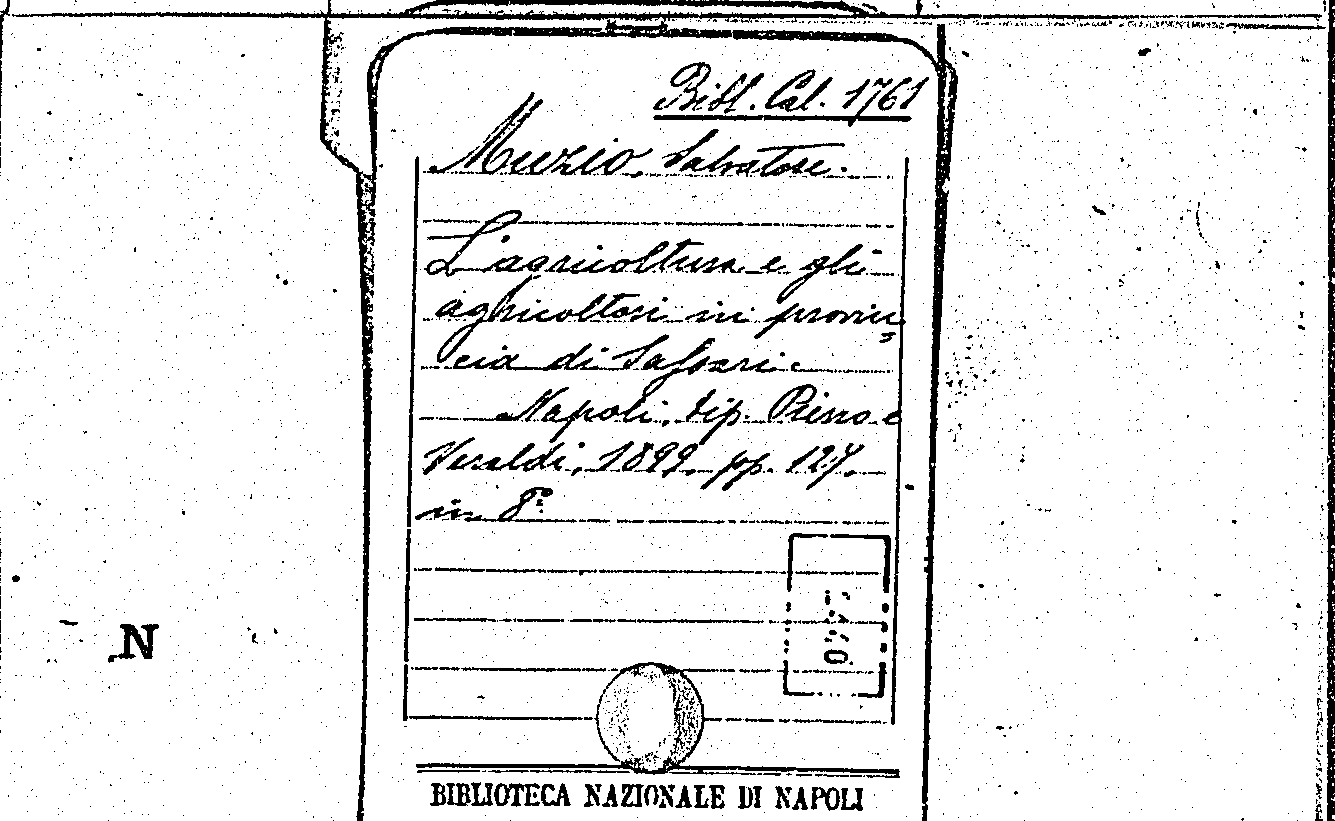 Bibl. Cal. 1761
Muzio, Salvatore.
L'agricoltura e gli
agricoltori in provin
cia di Sassari.
Napoli, tip. Pierro e
Veraldi, 1899, pp. 127,
in 8º
N
BIBLIOTECA NAZIONALE DI NAPOLI